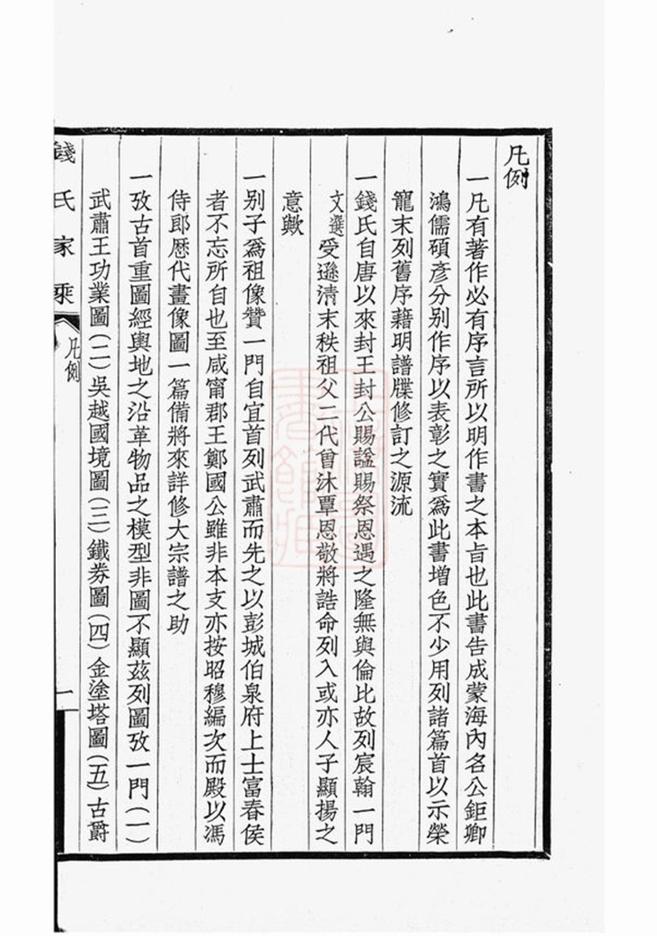 凡例
一凡有著作必有序言所以明作書之本旨也此書告成蒙海內名公鉅卿
鴻儒碩彥分別作序以表彰之實爲此書增色不少用列諸篇首以示榮
寵末列舊序藉明譜牒修訂之源流
一錢氏自唐以來封王封公賜諡賜祭恩遇之隆無與倫比故列宸翰一門
文選受遜清末秩祖父二代曾沐覃恩敬將誥命列入或亦人子顯揚之
意歟
一别子爲祖像贊一門自宜首列武肅而先之以彭城伯泉府上士富春侯
者不忘所自也至咸甯郡王鄭國公雖非本支亦按昭穆編次而殿以馮
侍郎歷代畫像圖一篇備將來詳修大宗譜之助
一攷古首重圖經輿地之沿革物品之模型非圖不顯茲列圖攷一門(一)
武肅王功業圖(二)吳越國境圖(三)鐵券圖(四)金塗塔圖(五)古爵
錢氏家乘
凡例
一